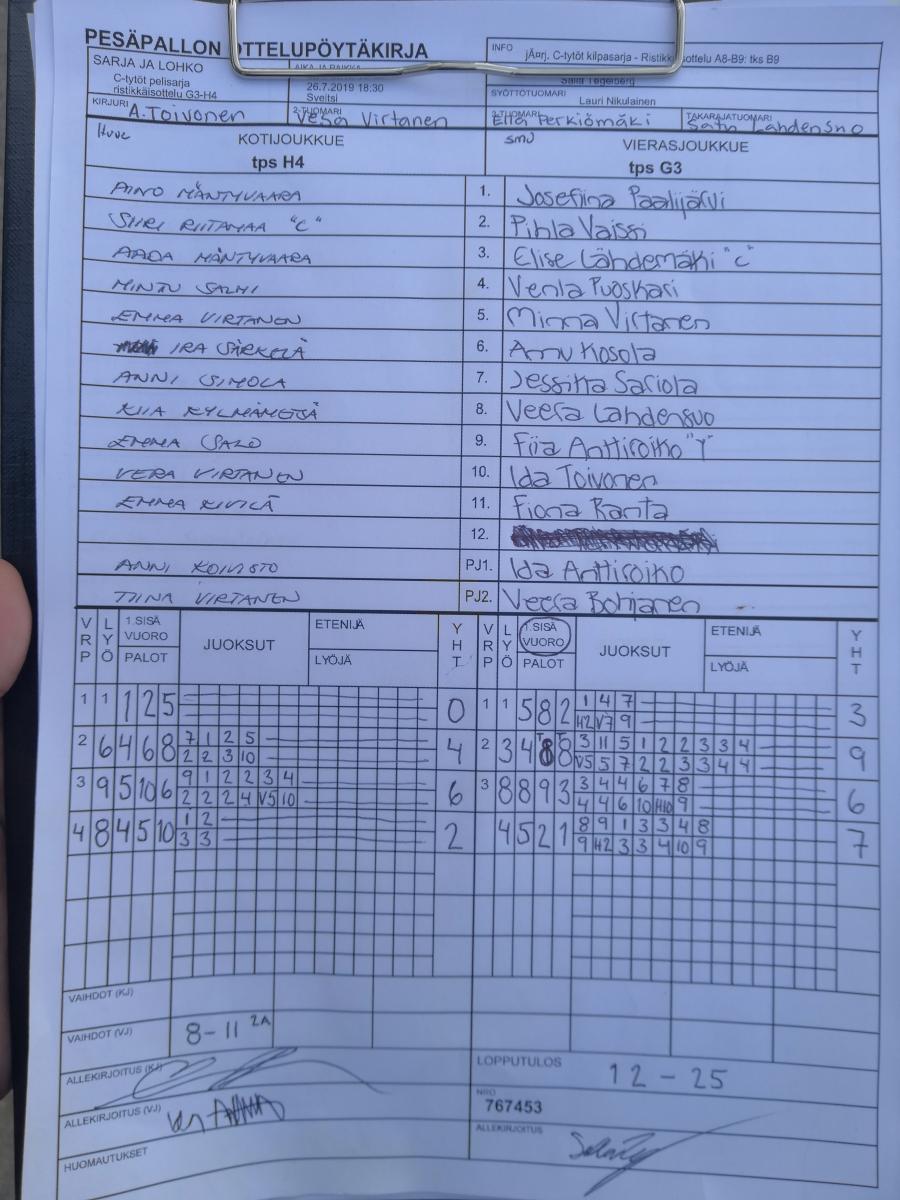 PESÄPALLON OTTELUPÖYTÄKIRJA
SARJA JA LOHKO
C-tytöt pelisarja
ristikkäisottelu G3-H4
AIKA JA PAIKKA
26.7.2019 18:30
Sveitsi
INFO
jÄ¤rj. C-tytöt kilpasarja - Ristikk ottelu A8-B9: tks B9
Salla Tegelberg
SYÖTTÖTUOMARI
Lauri Nikulainen
KIRJURI A.Toivonen
2-TUOMARI Vesa Virtanen
3-TUOMARI Ella Perkiömäki
TAKARAJATUOMARI Satu Lahdensuo
Huve KOTIJOUKKUE
tps H4
smJ VIERASJOUKKUE
tps G3
AINO MÄNTYVAARA 1. Josefiina Paalijärvi
SIIRI RIITAMAA "C" 2. Pihla Vaissi
AADA MÄNTYVAARA 3. Elise Lähdemäki "C"
MINTU SALMI 4. Venla Puoskari
EMMA VIRTANEN 5. Minna Virtanen
IRA SÄRKELÄ 6. Anu Kosola
ANNI SIMOLA 7. Jessika Sariola
KIIA KYLMÄMETSÄ 8. Veera Lahdensuo
EMMA SALO 9. Fiia Anttiroiko "T"
VERA VIRTANEN 10. Ida Toivonen
EMMA KIVILÄ 11. Fiona Ranta
12.
ANNI KOIVISTO PJ1. Ida Anttiroiko
TIINA VIRTANEN PJ2. Veera Bohjanen
VRP LYÖ 1.SISÄ VUORO PALOT JUOKSUT ETENIJÄ LYÖJÄ YHT VRP LYÖ 1.SISÄ VUORO PALOT JUOKSUT ETENIJÄ LYÖJÄ YHT
1 1 1 2 5 0 1 1 5 8 2 1 4 7 3
H2 V7 9
2 6 4 6 8 7 1 2 5 4 2 3 4 8 8 3 11 5 1 2 2 3 3 4 9
2 2 3 10 V5 5 7 2 2 3 3 4 4
3 9 5 10 6 9 1 2 2 3 4 6 3 8 8 9 3 3 4 4 6 7 8 6
2 2 2 4 V5 10 4 4 6 10 H10 9
4 8 4 5 10 1 2 2 4 5 2 1 8 9 1 3 3 4 8 7
3 3 9 H2 3 3 4 10 9
VAIHDOT (KJ)
VAIHDOT (VJ) 8-11 2A
ALLEKIRJOITUS (KJ)
LOPPUTULOS 12 - 25
ALLEKIRJOITUS (VJ)
NRO
767453
HUOMAUTUKSET
ALLEKIRJOITUS